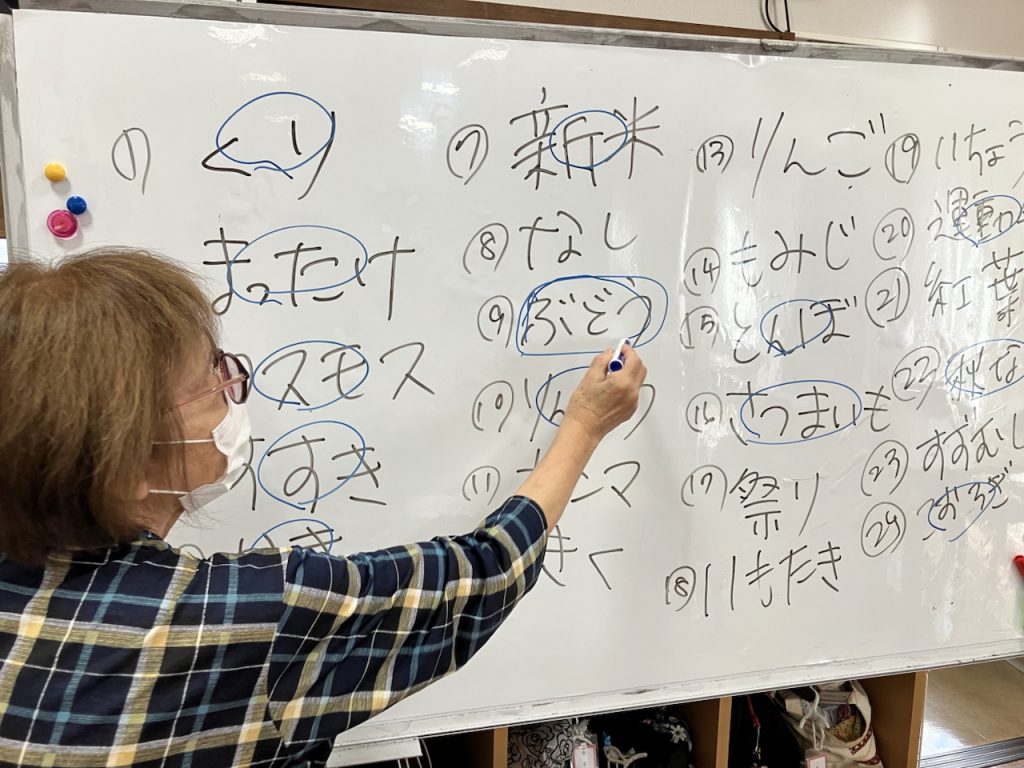 ① くり
まったけ
スモス
すき
⑦ 新米
⑧ なし
⑨ ぶどう
⑩
⑪ ンマ
きく
⑬ りんご
⑭ もみじ
⑮ とんぼ
⑯ さつまいも
⑰ 祭り
⑱ いもたき
⑲ いちょう
⑳ 運動
㉑ 紅葉
㉒ 秋な
㉓ すずむし
㉔ こおろぎ